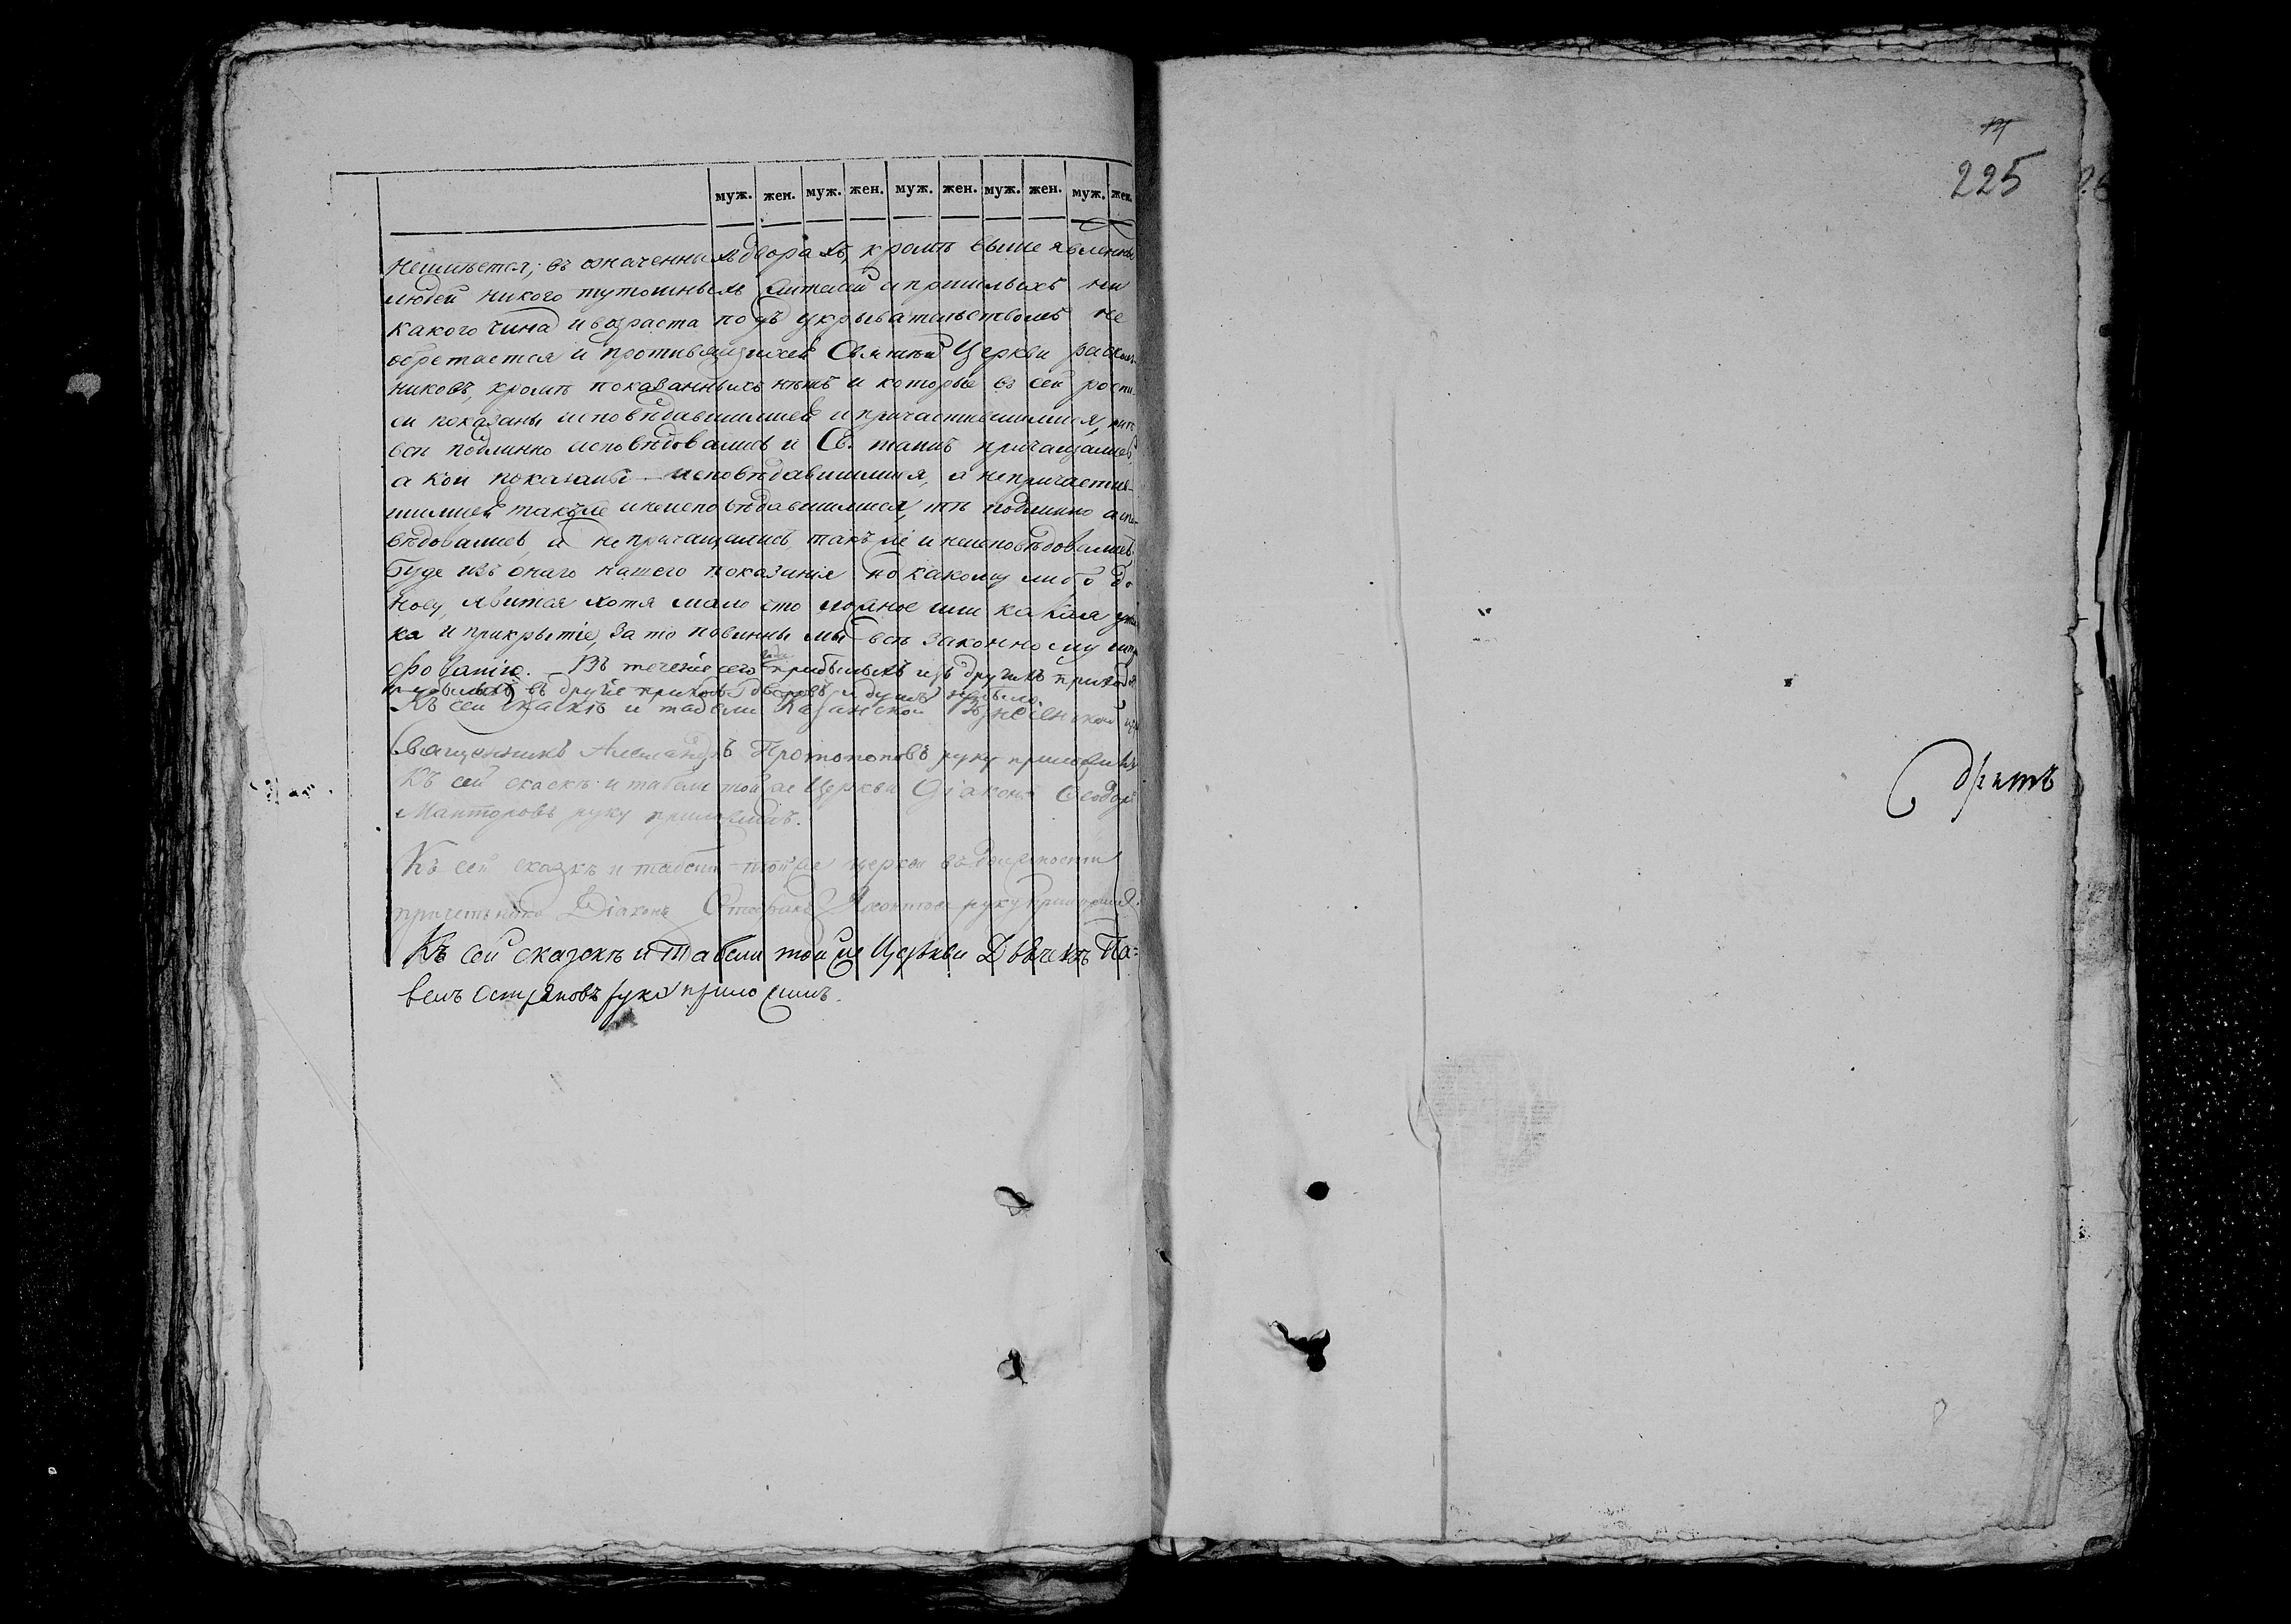 муж. жен. муж. жен. муж. жен. муж. жен. муж. жен.
неимѣется; въ означенныхъ дворахъ, кромѣ выше явленныхъ
людей никого тутошныхъ жителей и пришлыхъ ни
какого чина и возраста подъ укрывательствомъ не
обретается и противящихся Святѣй Церкви расколь-
никовъ, кромѣ показанныхъ нѣтъ и которые въ сей роспи-
си показаны исповѣдавшимися и причастившимися, тѣ
всѣ подлинно исповѣдовались и Св. таинъ причащались,
а кои показаны исповѣдавшимися, а непричастив-
шимися такъже и неисповѣдавшимися, тѣ подлинно испо-
вѣдовались, а не причащились, такъже и неисповѣдовались
буде изъ онаго нашего показанія по какому либо до
носу, явится хотя мало что ложное или какая утай
ка и прикрытіе, за то повинны мы всѣ законному штра
фованію. – Въ теченіе сего года прибылыхъ изъ другихъ приходовъ
и убылыхъ въ другіе приходы дворовъ и душъ небыло.
Къ сей скаскѣ и табели Казанской Вознесенской
Священникъ Александръ Протопоповъ руку приложилъ
Къ сей скаскѣ и табели той же Церкви Діаконъ Ѳеодоръ
Мантуровъ руку приложилъ.
Къ сей сказкѣ и табели той же церкви въ должности
причетника Діаконъ Стефанъ руку приложилъ.
Къ сей сказокъ и табели той же Церкви Дьячекъ Па=
велъ руку приложилъ.
225